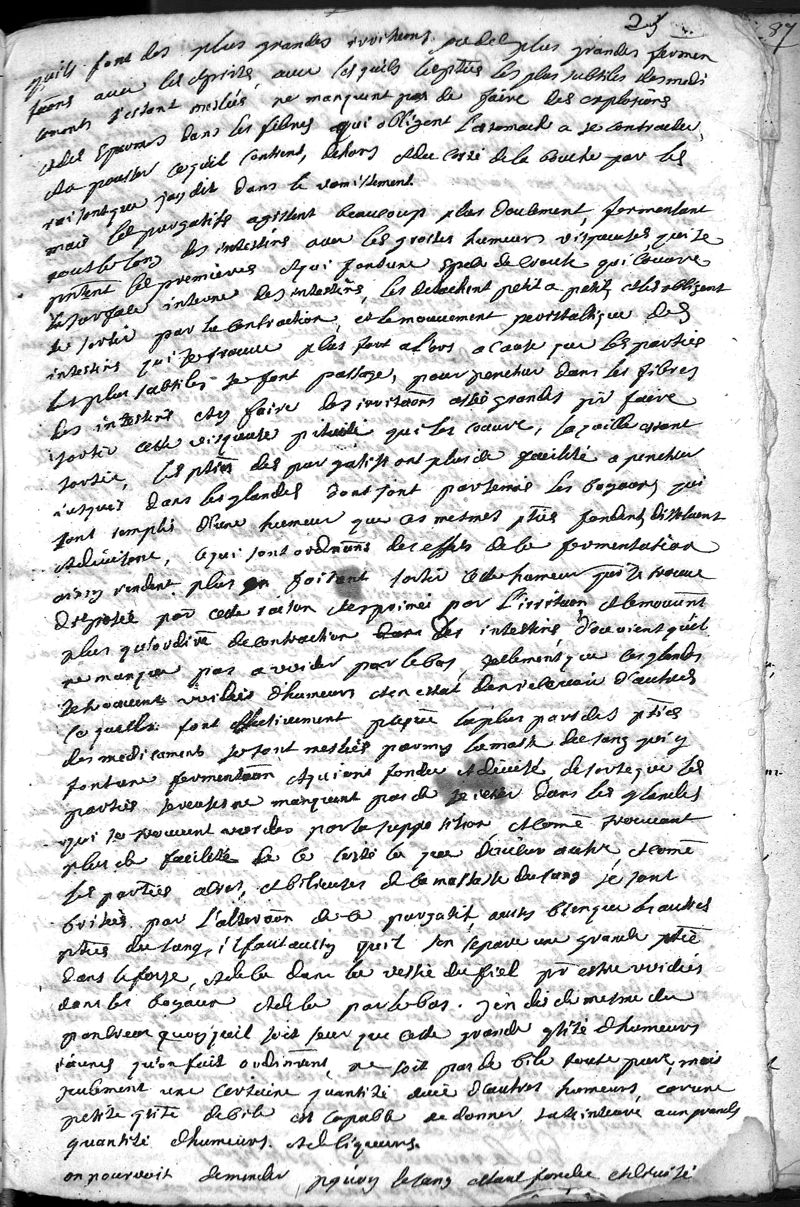 23
87
quils font des plus grandes irritions, et de plus grandes fermen
taons avec les esprits, avec lesquels les pties les plus subtiles des medi
caments s'estant meslés, ne manquent pas de faire des explosions
et des spasmes dans les fibres qui obligent l'estomach a se contracter,
et a pousser ce quil contient, dehors et du costé de la bouche par les
raisons que jay dit dans le vomissement.
mais les purgatifs agissent beaucoup plus doucement fermentant
tout le long des intestins avec les grosses humeurs visqueuses qui se
pntent les premieres et qui font une espece de croute qui couvre
la surface interne des intestins, les detachent petit a petit, et les obligent
de sortir par la contraction, et le mouvement peristaltique des
intestins qui se trouve plus fort alors a cause que les parties
les plus subtiles se font passage, pour penetrer dans les fibres
des intestins et y faire des irritaons assés grandes pr faire
sortir cette visqueuse pituite qui les couvre, laquelle etant
sortie, les pties des purgatifs ont plus de facilité a penetrer
jusques dans les glandes dont sont parsemés les boyaux, qui
sont remplis d'une humeur que ces mesmes pties fondent, dissolvent
et divisent, ce qui sont ordinairms des effets de la fermentation
ainsy rendent plus en faisant sortir cette humeur qui se trouve
disposée par cette raison et exprimée par l'irritaon, et le mouvemt
plus qu'ordire de contraction des intestins, d'ou vient qu'il
ne manque pas a vuider par le bas, tellement que ces glandes
se trouvent vuides d'humeurs et en estat d'en recevoir d'autres
ce quelles font effectivement puisque la plus part des pties
des medicaments se sont meslées parmy la masse du sang qui y
font une fermentaon et qui ont fondu et divisé de sorte que les
parties sereuses ne manquent pas de se ietter dans les glandes
qui se trouvent vuides par la supposition et come trouvant
plus de facilité de ce costé la que d'aucun autre et come
les parties acres, et bilieuses de la masse du sang se sont
brisées par l'alteraon de ce purgatif aussy bien que les autres
pties du sang, il faut aussy quil s'en separe une grande ptie
dans le foye, et de la dans la vessie du fiel pr estre vuidées
dans les boyaux et de la par le bas. J'en dis de mesme du
pancreas quoyquil soit seur que cette grande qtité d'humeurs
jaunes qu'on fait ordinairemt, ne soit pas de bile toute pure, mais
seulement une certaine quantité avec d'autres humeurs, car une
petite qtité de bile est capable de donner la teinture a un grande
quantité d'humeurs et de liqueurs.
on pourroit demander pquoy le sang estant fondu et divisé